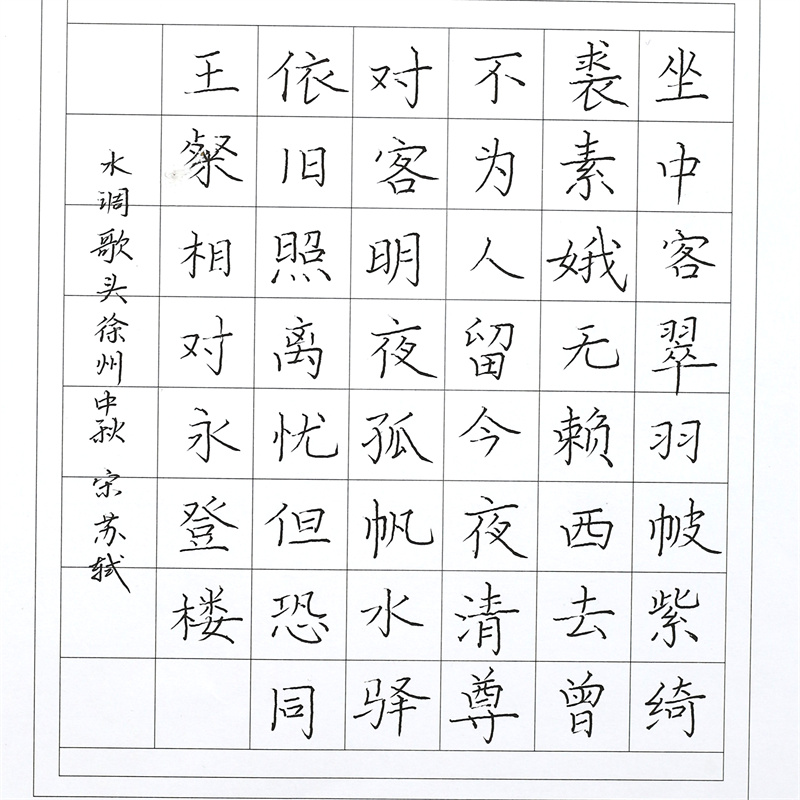 坐中客翠羽帔紫绮
裘素娥无赖西去曾
不为人留今夜清尊
对客明夜孤帆水驿
依旧照离忧但恐同
王粲相对永登楼
水调歌头徐州中秋 宋苏轼